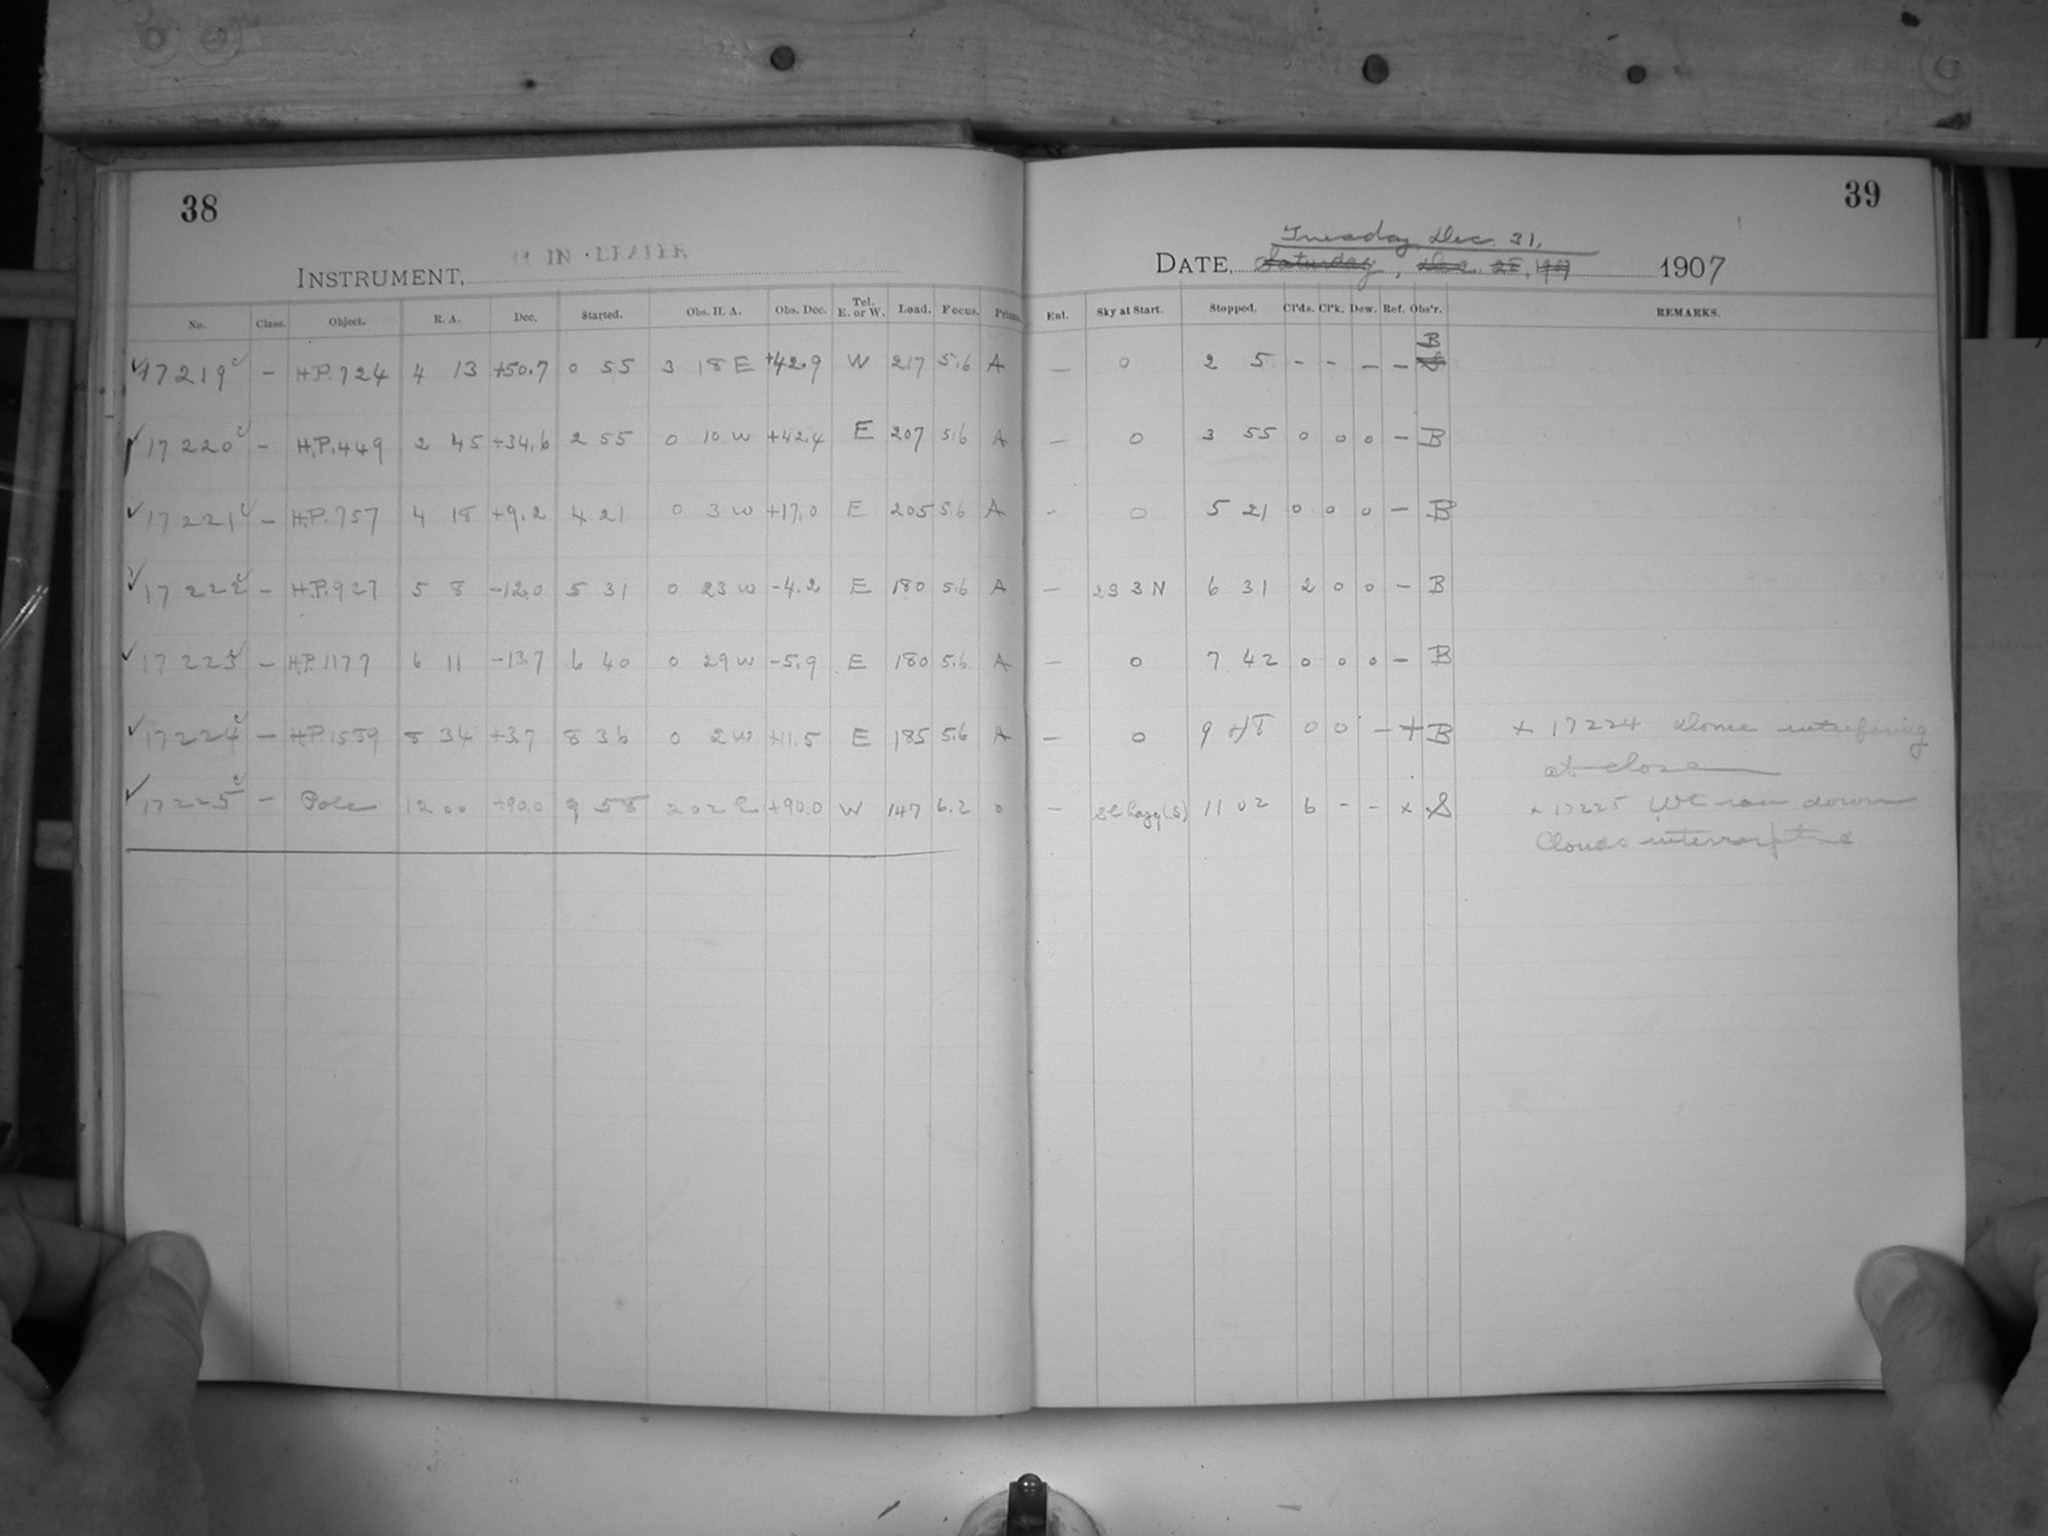 38
39
11 IN. DRAPER
Tuesday Dec. 31,
INSTRUMENT,
DATE, Saturday, Dec. 28, 1907 1907
No. Class. Object. R. A. Dec. Started. Obs. H. A. Obs. Dec. Tel. E. or W. Load. Focus. Prisms. Enl. Sky at Start. Stopped. Cl'ds. Cl'k. Dew. Ref. Obs'r. REMARKS.
17219 – H.P. 724 4 13 +50.7 0 55 3 18 E +42.9 W 217 5.6 A — 0 2 5 – – – – B S
17220 – H.P. 449 2 45 +34.6 2 55 0 10 W +42.4 E 207 5.6 A — 0 3 55 0 0 0 – B
17221 – H.P. 757 4 18 +9.2 4 21 0 3 W +17.0 E 205 5.6 A – 0 5 21 0 0 0 – B
17222 – H.P. 927 5 8 –12.0 5 31 0 23 W –4.2 E 180 5.6 A — 2S 3N 6 31 2 0 0 – B
17223 – H.P. 1177 6 11 –13.7 6 40 0 29 W –5.9 E 180 5.6 A — 0 7 42 0 0 0 – B
17224 – H.P. 1559 8 34 +3.7 8 36 0 2 W +11.5 E 185 5.6 A — 0 9 48 0 0 – + B + 17224 Dome interfering
at close
17225 – Pole 12 00 +90.0 9 58 2 02 E +90.0 W 147 6.2 0 — hazy (S) 11 02 6 – – × S × 17225 Wt ran down
Clouds interrupted